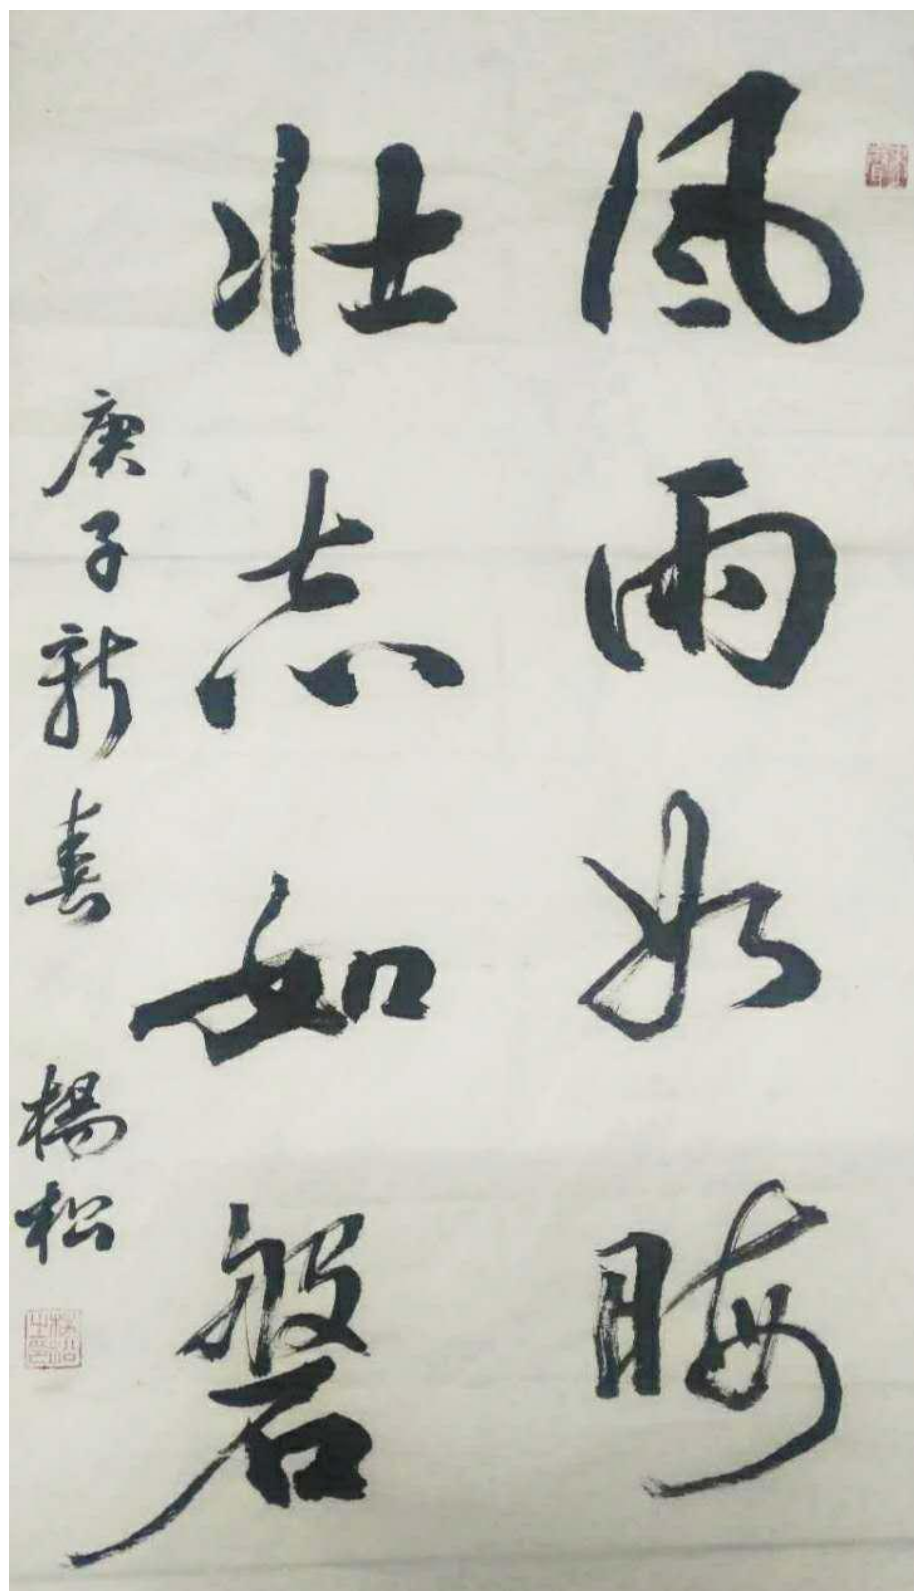 風雨如晦
壯志如磐
庚子新春 楊松